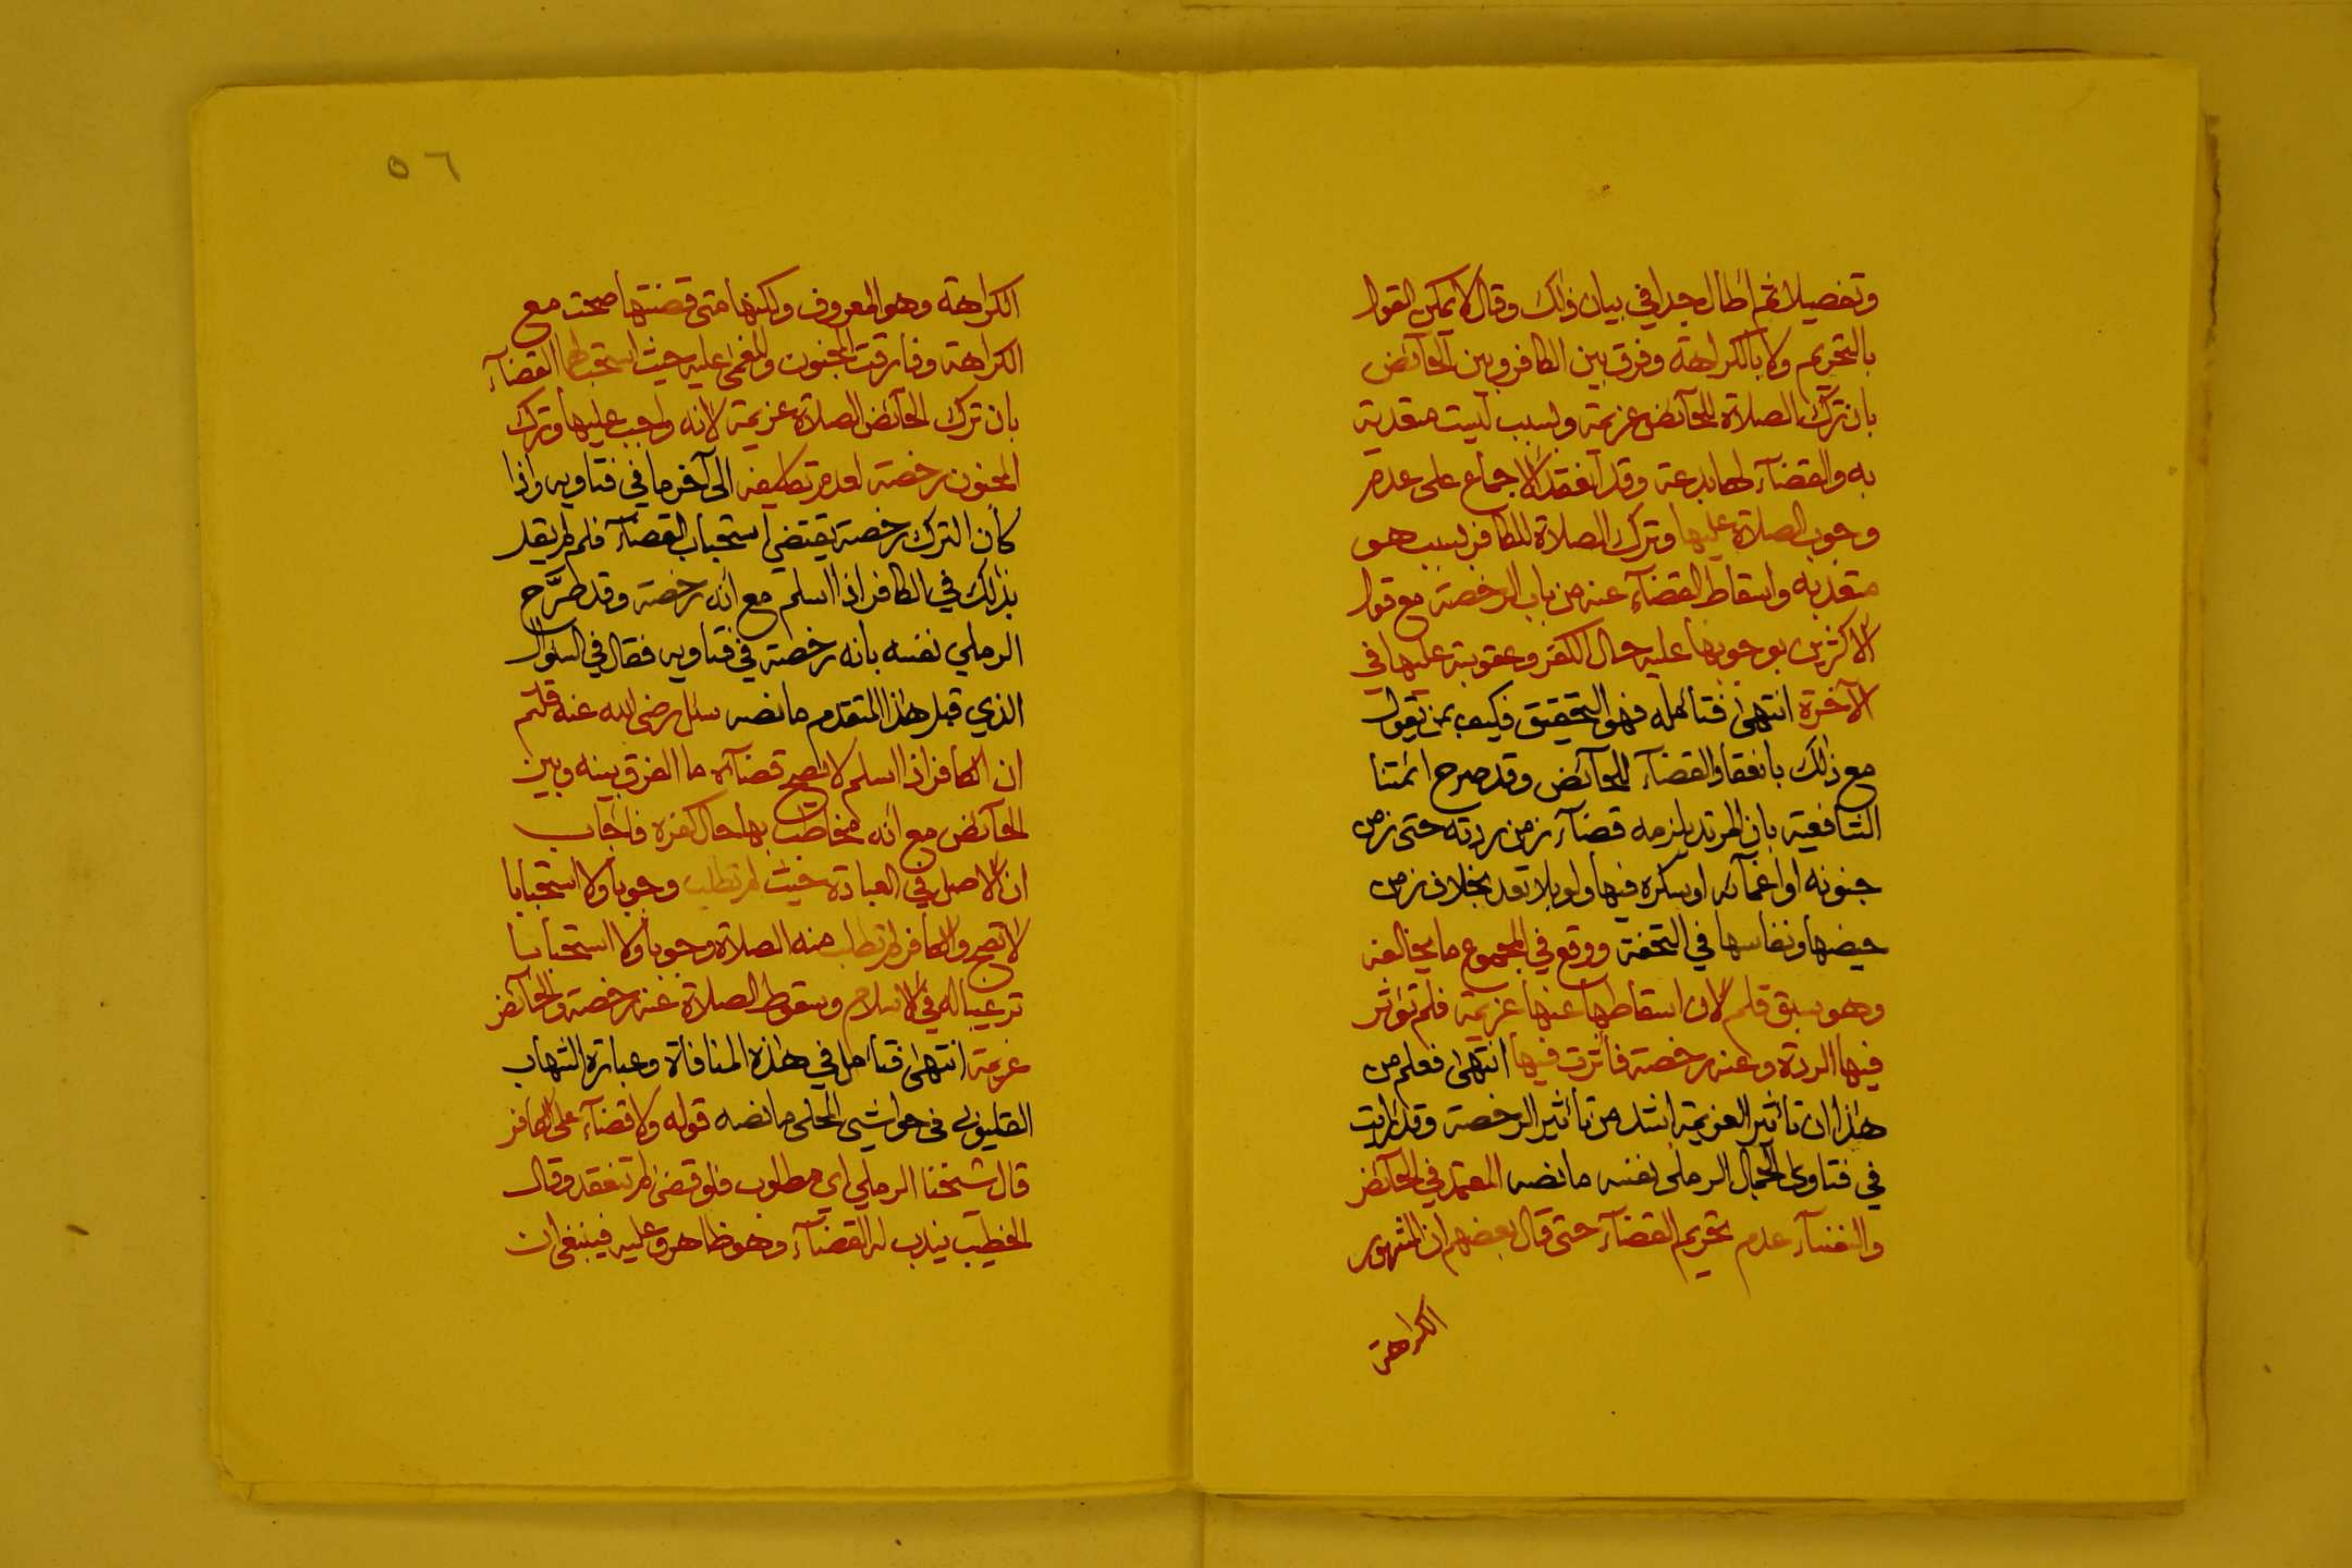 وتفصيلا ثم اطال جدا في بيان ذلك وقال لا يمكن القول
بالتحريم ولا بالكراهة وفرق بين الكافر وبين الحائض
بان ترك الصلاة للحائض عزيمة وبسبب ليست متعدية
به والقضآء لها بدعة وقد انعقد الاجماع على عدم
وجوب الصلاة عليها وترك الصلاة للكافر بسبب هو
متعد به واسقاط القضآء عنه من باب الرخصة مع قول
الاكثرين بوجوبها عليه حال الكفر وعقوبته عليها في
الآخرة انتهى فتأمله فهو التحقيق فكيف بمن يقول
مع ذلك بانعقاد القضآء للحائض وقد صرح ائمتنا
الشافعية بان المرتد يلزمه قضآء زمن ردته حتى زمن
جنونه او اغمآئه او سكره فيها ولو بلا تعد بخلاف زمن
حيضها ونفاسها في التحفة ووقع في المجموع ما يخالفه
وهو سبق قلم لان اسقاطها عنها عزيمة فلم تؤثر
فيها الردة وعنه رخصة فأثرت فيها انتهى فعلم من
هذا ان تأثير العزيمة اشد من تأثير الرخصة وقد رأيت
في فتاوى الجمال الرملى نفسه ما نصه المعتمد في الحآئض
والنفسآء عدم تحريم القضآء حتى قال بعضهم ان المشهور
الكراهة
٥٦
الكراهة وهو المعروف ولكنها متى قضتها صحت مع
الكراهة وفارقت المجنون والمغمى عليه حيث استحب لهما القضآء
بان ترك الحآئض الصلاة عزيمة لانه واجب عليها وترك
المجنون رخصة لعدم تكليفه الى آخر ما في فتاويه واذا
كان الترك رخصة يقتضي استحباب القضآء فلم لم يقل
بذلك في الكافر اذا اسلم مع انه رخصة وقد صرَّح
الرملي نفسه بانه رخصة في فتاويه فقال في السؤال
الذي قبل هذا المتقدم ما نصه سئل رضي الله عنه قلتم
ان الكافر اذا اسلم لا يصح قضآؤه ما الفرق بينه وبين
الحآئض مع انه مخاطب بها حال كفره فاجاب
ان الاصل في العبادة حيث لم تطلب وجوبا ولا استحبابا
لا تصح والكافر لم تطلب منه الصلاة وجوبا ولا استحبابا
ترغيبا له في الاسلام وسقوط الصلاة عنه رخصة والحآئض
عزيمة انتهى فتأمل في هذه المنافاة وعبارة الشهاب
القليوبي في حواشي المحلى ما نصه قوله ولا قضآء على الكافر
قال شيخنا الرملي اي مطلوب فلو قضى لم تنعقد وقال
الخطيب يندب له القضآء وهو ظاهر وعليه فينبغي ان